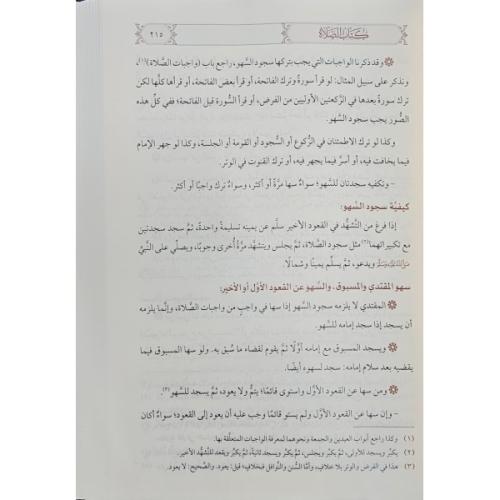 كتاب الصلاة
٢١٥
وقد ذكرنا الواجبات التي يجب بتركها سجود السهو، راجع باب (واجبات الصَّلاة)(١)،
ونذكر على سبيل المثال: لو قرأ سورةً وترك الفاتحة، أو قرأ بعضَ الفاتحة، أو قرأها كلَّها لكن
ترك سورةً بعدها في الرَّكعتين الأوليين من الفرض، أو قرأ السُّورة قبل الفاتحة؛ ففي كلِّ هذه
الصُّور يجب سجود السَّهو.
وكذا لو ترك الاطمئنان في الرُّكوع أو السُّجود أو القومة أو الجلسة، وكذا لو جهر الإمام
فيما يخافت فيه، أو أسرَّ فيما يجهر فيه، أو ترك القنوت في الوتر.
- وتكفيه سجدتان للسَّهو؛ سواءٌ سها مرَّةً أو أكثر، وسواءٌ ترك واجبًا أو أكثر.
كيفيَّة سجود السَّهو:
إذا فرغ من التَّشهُّد في القعود الأخير سلَّم عن يمينه تسليمةً واحدةً، ثمَّ سجد سجدتين
مع تكبيراتهما(٢) مثل سجود الصَّلاة، ثمَّ يجلس ويتشهَّد مرَّةً أخرى وجوبًا، ويصلِّي على النَّبيِّ
ﷺ ويدعو، ثمَّ يسلِّم يمينًا وشمالًا.
سهو المقتدي والمسبوق، والسَّهو عن القعود الأوَّل أو الأخير:
المقتدي لا يلزمه سجود السَّهو إذا سها في واجبٍ من واجبات الصَّلاة، وإنَّما يلزمه
أن يسجد إذا سجد إمامه للسَّهو.
ويسجد المسبوق مع إمامه أوَّلًا ثمَّ يقوم لقضاء ما سُبق به. ولو سها المسبوق فيما
يقضيه بعد سلام إمامه: سجد لسهوه أيضًا.
ومن سها عن القعود الأوَّل واستوى قائمًا؛ يتمُّ ولا يعود، ثمَّ يسجد للسَّهو(٣).
- وإن سها عن القعود الأوَّل ولم يستوِ قائمًا وجب عليه أن يعود إلى القعود؛ سواءٌ أكان
(١) وكذا راجع أبواب العيدين والجمعة ونحوهما لمعرفة الواجبات المتعلِّقة بها.
(٢) يكبِّر ويسجد للأولى، ثمَّ يكبِّر ويجلس، ثمَّ يكبِّر ويسجد ثانيةً، ثمَّ يكبِّر ويقعد للتَّشهُّد الأخير.
(٣) هذا في الفرض والوتر بلا خلافٍ، وأمَّا السُّنن والنَّوافل فبخلافٍ؛ قيل: يعود. والصَّحيح: لا يعود.